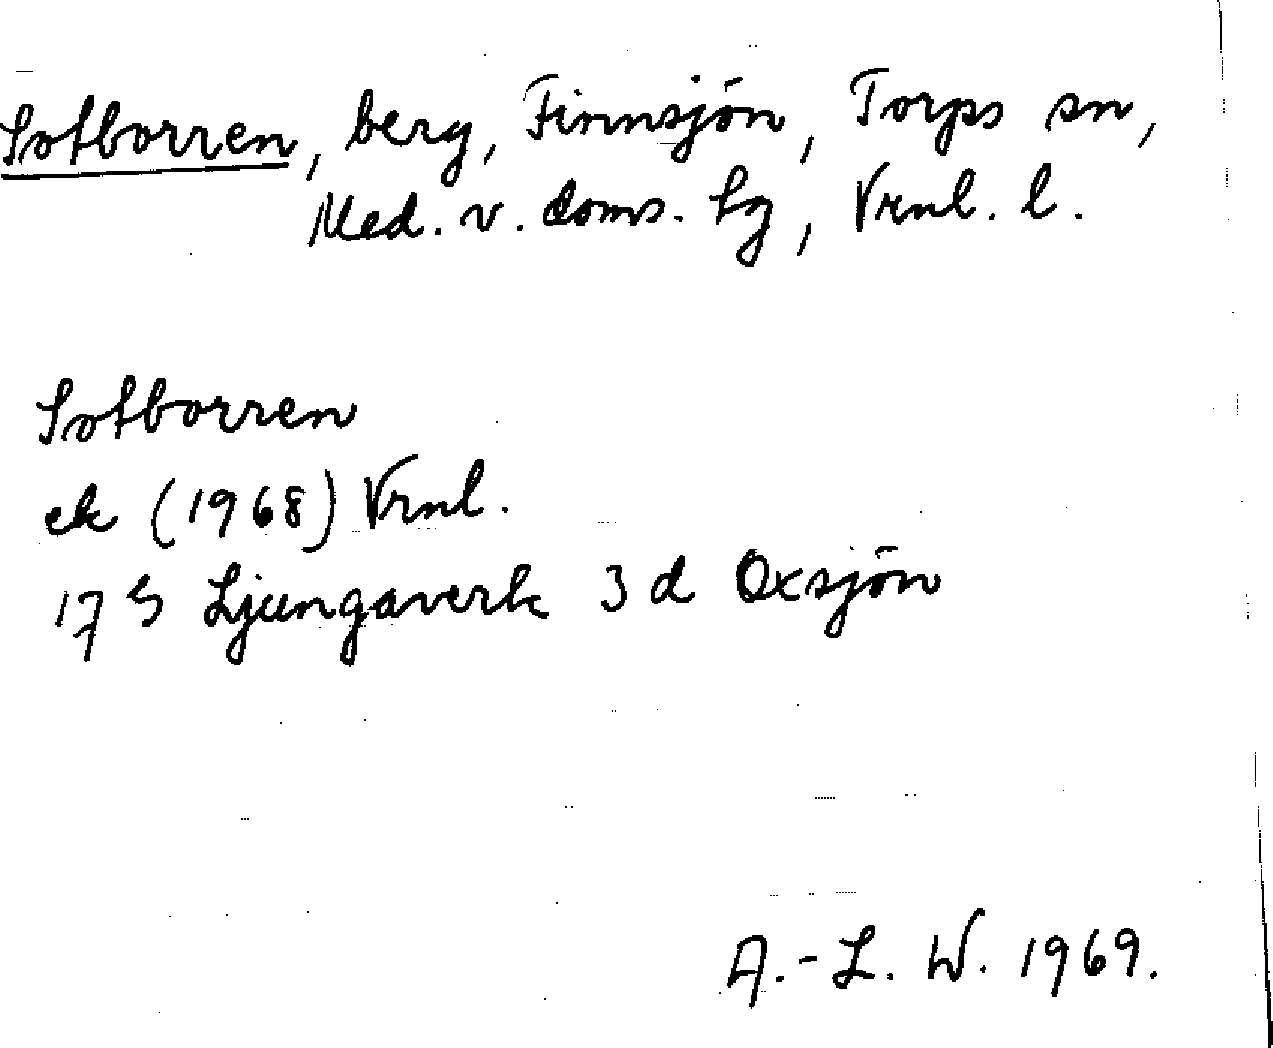 Sotborren, berg, Finnsjön, Torps sn,
Med. v. doms. hg, Vrnl. l.
Sotborren
ek (1968) Vrnl.
17 G Ljungaverk 3 d Oxsjön
A.-L. W. 1969.